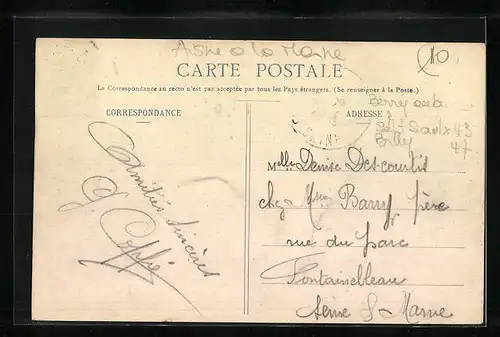 Aisne à la Marne
10
CARTE POSTALE
La Correspondance au recto n'est pas acceptée par tous les Pays étrangers. (Se renseigner à la Poste.)
CORRESPONDANCE
ADRESSE
43
47
Amitiés sincères
G. Coppé
Melle Denise Descourtis
chez Mme Barry père
rue du parc
Fontainebleau
Seine & Marne